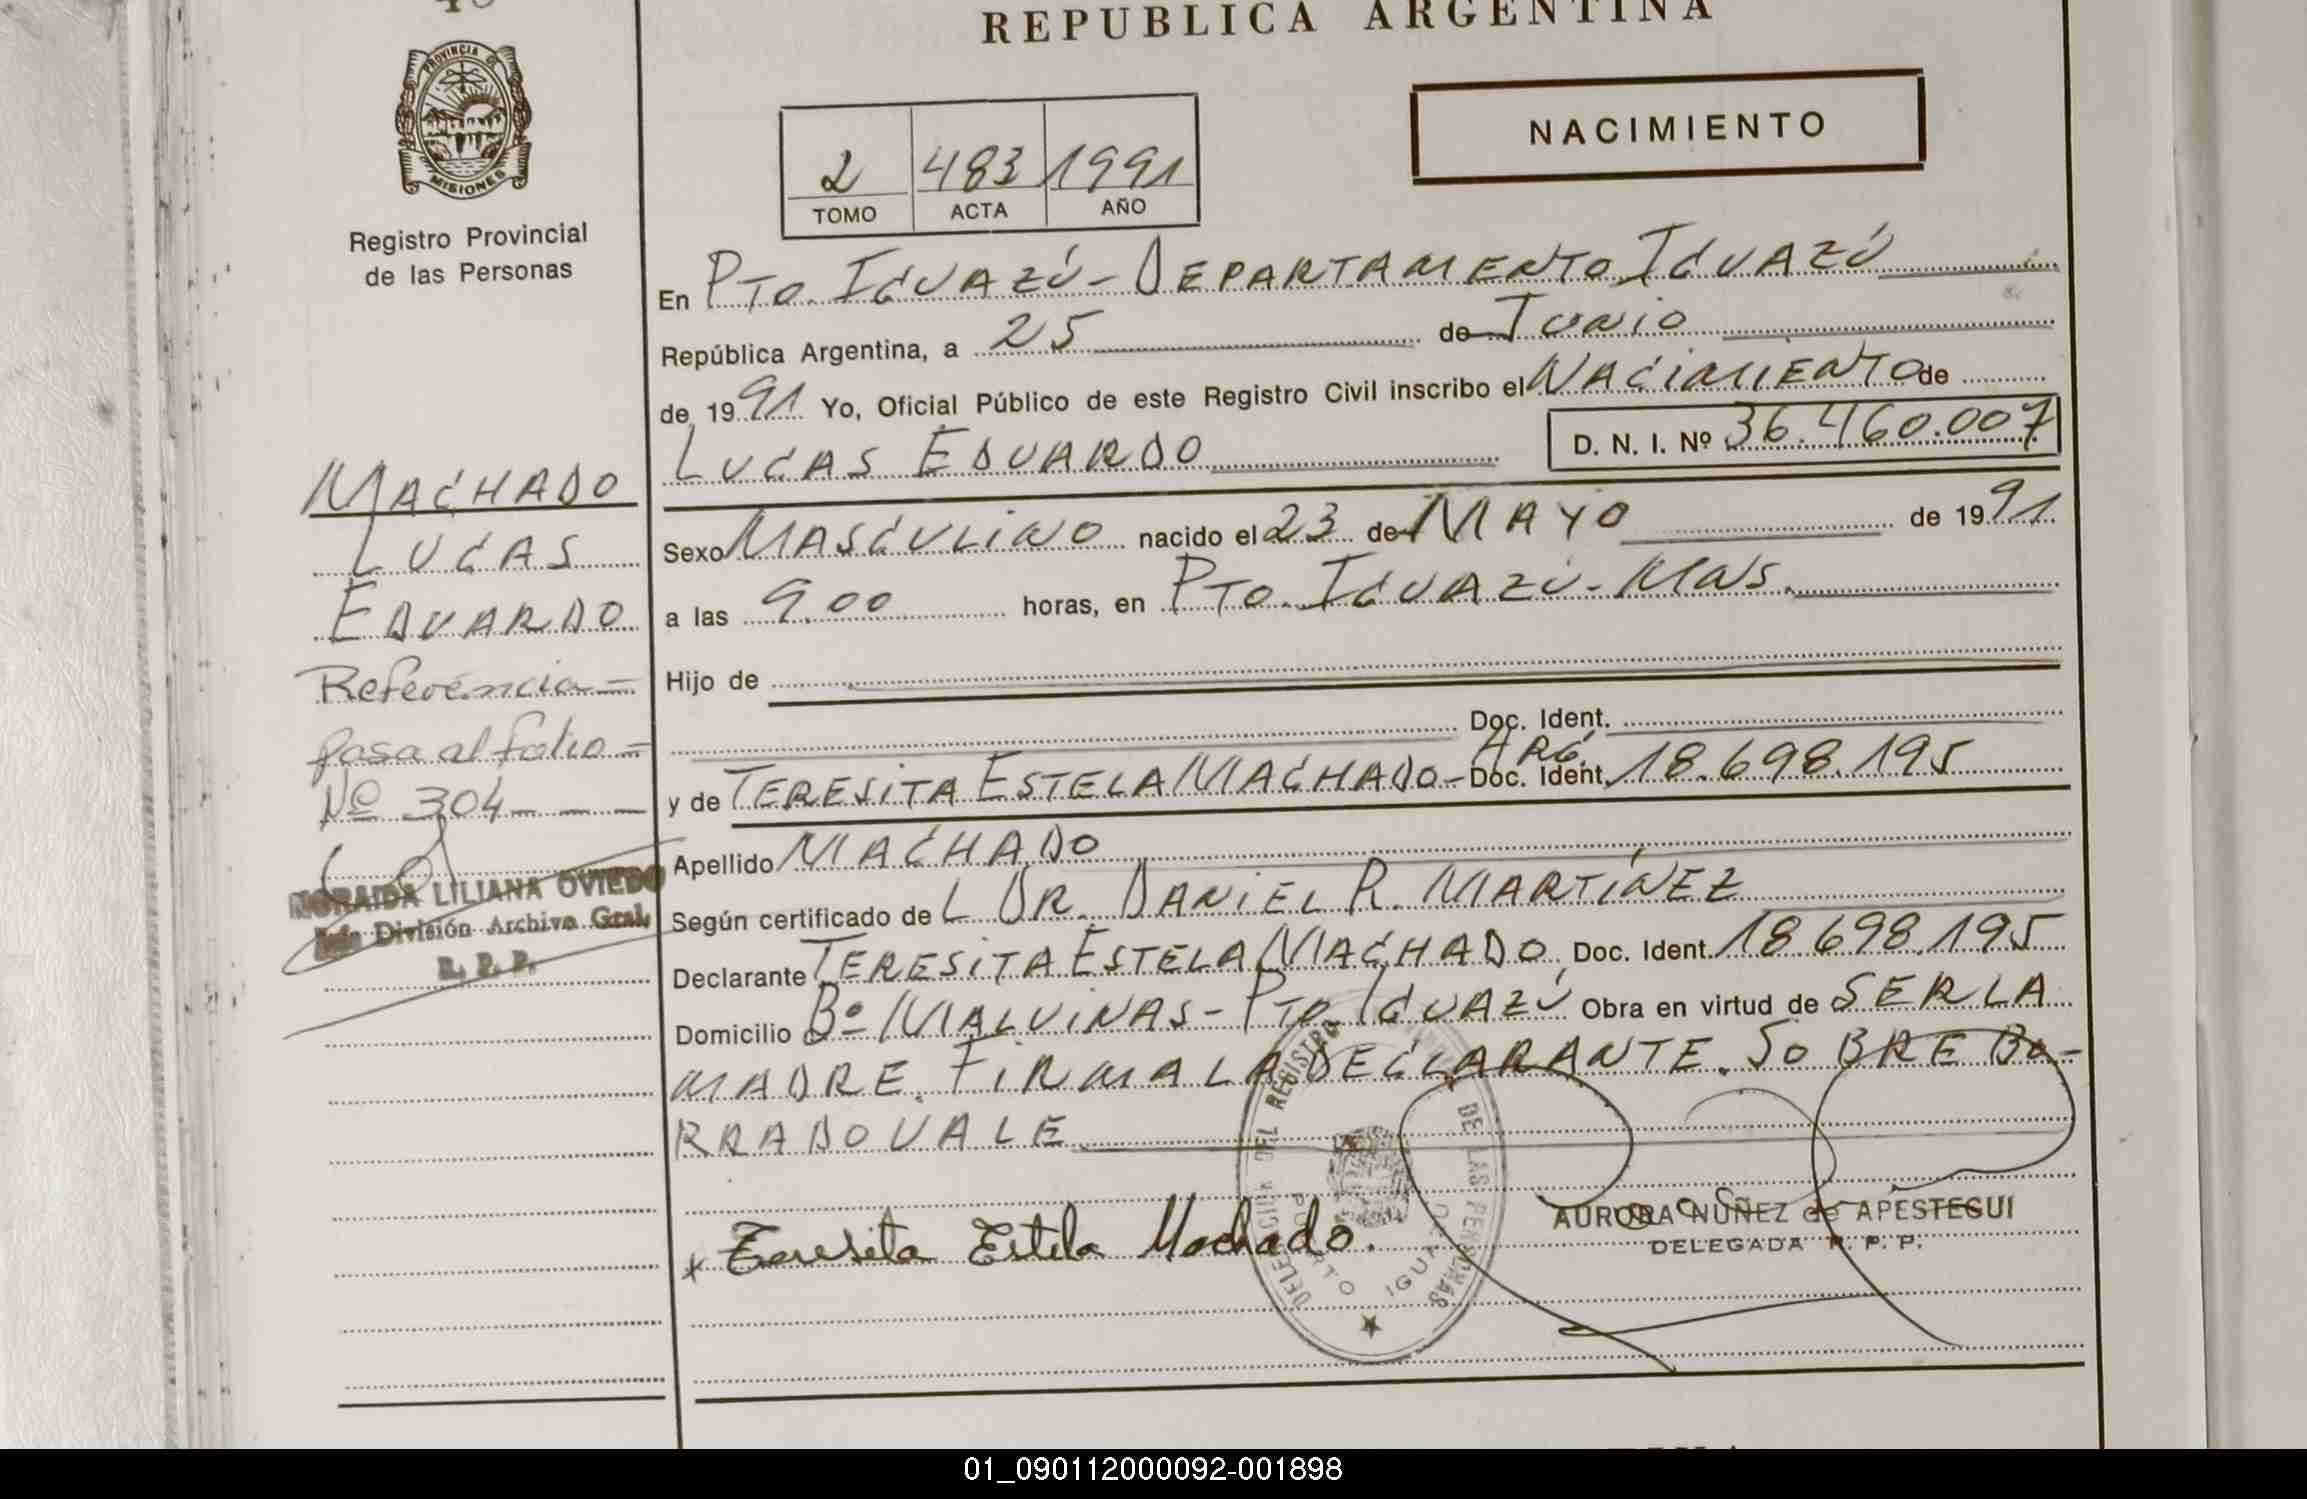 REPUBLICA ARGENTINA
PROVINCIA DE
MISIONES
Registro Provincial
de las Personas
2 483 1991
TOMO ACTA AÑO
NACIMIENTO
En Pto. Iguazú - Departamento Iguazú
República Argentina, a 25 de Junio
de 1991 Yo, Oficial Público de este Registro Civil inscribo el Nacimiento de
Lucas Eduardo D. N. I. Nº 36.460.007
Sexo Masculino nacido el 23 de Mayo de 1991
a las 9.00 horas, en Pto. Iguazú - Mns.
Hijo de
Doc. Ident.
y de Teresita Estela Machado - Arg. Doc. Ident. 18.698.195
Apellido Machado
Según certificado del Dr. Daniel R. Martínez
Declarante Teresita Estela Machado Doc. Ident. 18.698.195
Domicilio Bº Malvinas - Pto. Iguazú Obra en virtud de ser la
madre. Firma la declarante. Sobre Bo-
rrado vale
Teresita Estela Machado.
AURORA NUÑEZ de APESTEGUI
DELEGADA R. P. P.
DELEGACION DEL REGISTRO DE LAS PERSONAS
PUERTO IGUAZU
Machado
Lucas
Eduardo
Referencia -
pasa al folio -
Nº 304 - - -
NORAIDA LILIANA OVIEDO
Jefe División Archivo Gral.
R. P. P.
01_090112000092-001898